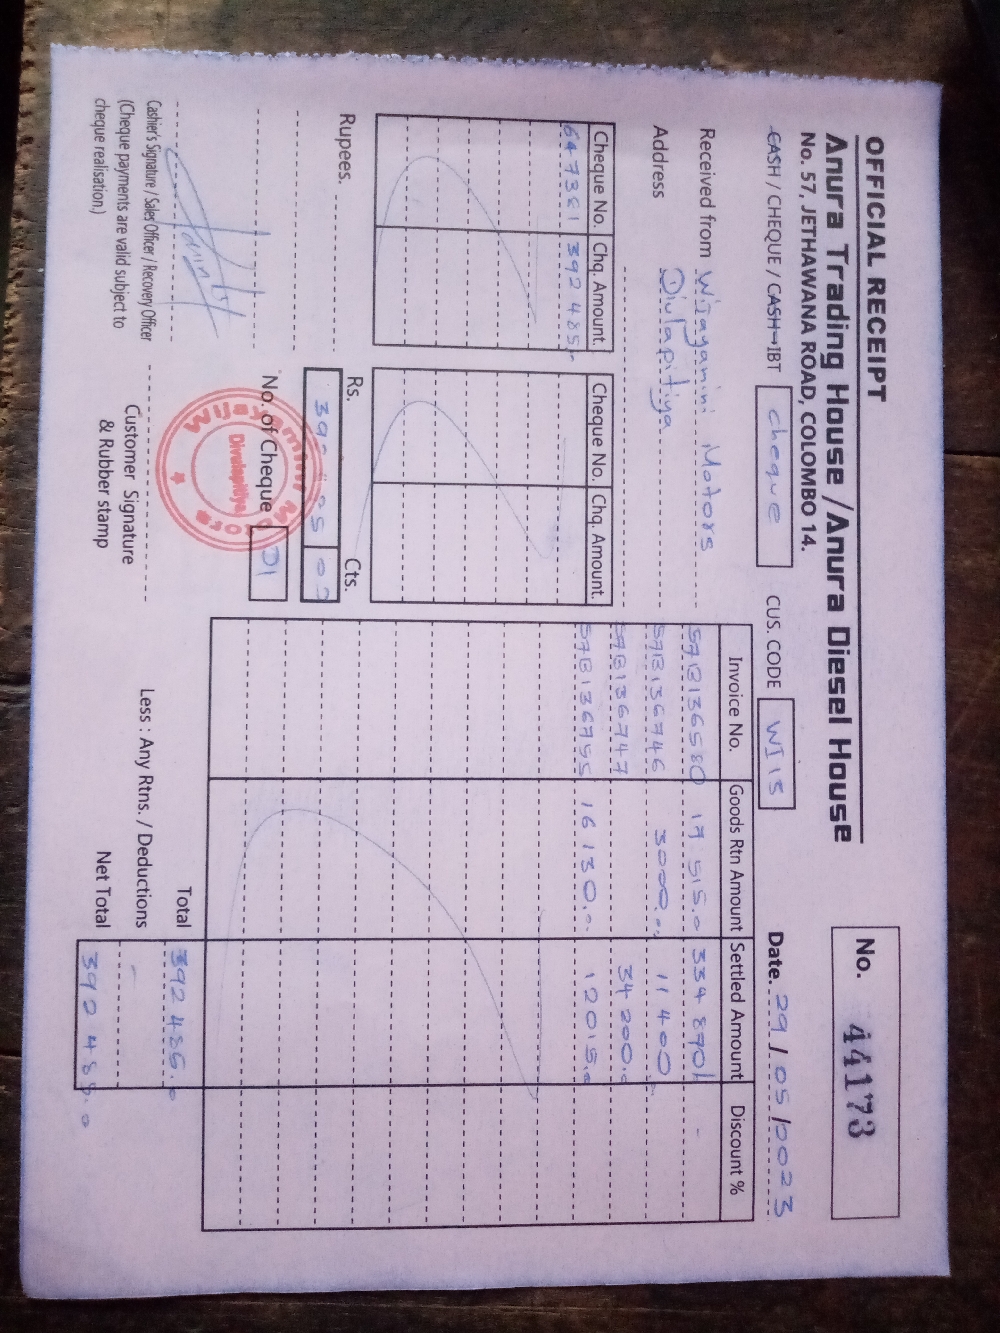 OFFICIAL RECEIPT
No. 44173
Anura Trading House / Anura Diesel House
No. 57, JETHAWANA ROAD, COLOMBO 14.
CASH / CHEQUE / CASH→IBT cheque CUS. CODE WI 15 Date. 29/05/2023
Received from Wijayamini Motors
Address Divlapitiya
Cheque No. Chq. Amount. Cheque No. Chq. Amount.
647381 392 485.
Invoice No. Goods Rtn Amount Settled Amount Discount %
57B136580 17 515.0 334 870 -
57B136746 3000.00 11 400
57B136747 34 200.0
57B136755 16 130.0 12015.0
Rupees. Rs. Cts.
No. of Cheque 01
Wijayamini Motors
Divulapitiya
Total
Less : Any Rtns. / Deductions -
Net Total 392 485.0
Cashier's Signature / Sales Officer / Recovery Officer
(Cheque payments are valid subject to
cheque realisation.)
Customer Signature
& Rubber stamp